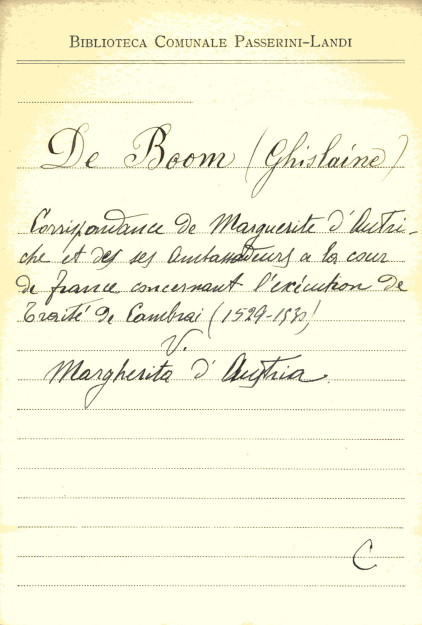 BIBLIOTECA COMUNALE PASSERINI-LANDI
De Boom (Ghislaine)
Correspondance de Marguerite d'Autri-
che et des ses ambassadeurs a la cour
de france concernant l'exécution de
Traité de Cambrai (1529-1530)
V.
Margherita d'Austria
C